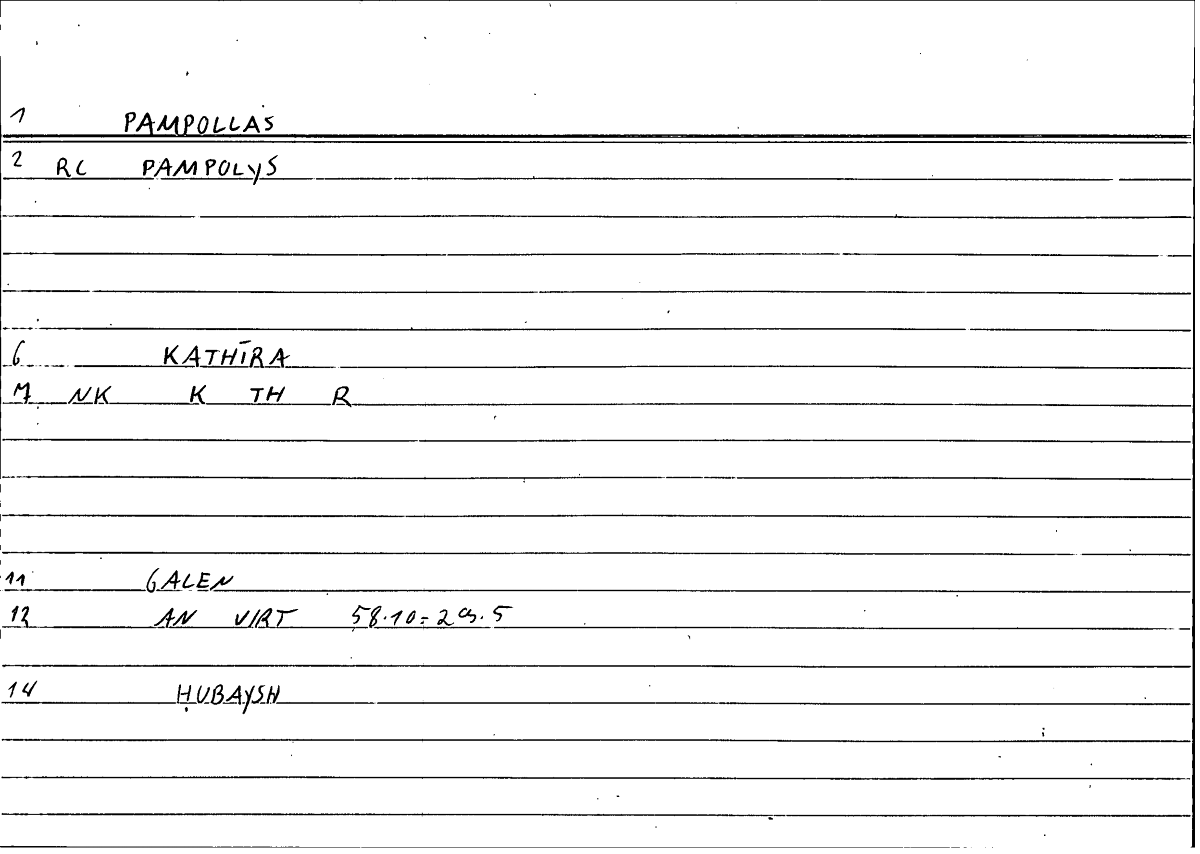 1 PAMPOLLAS
2 RC PAMPOLYS
6 KATHĪRA
7 NK K TH R
11 GALEN
12 AN VIRT 58.10=29.5
14 ḤUBAYSH